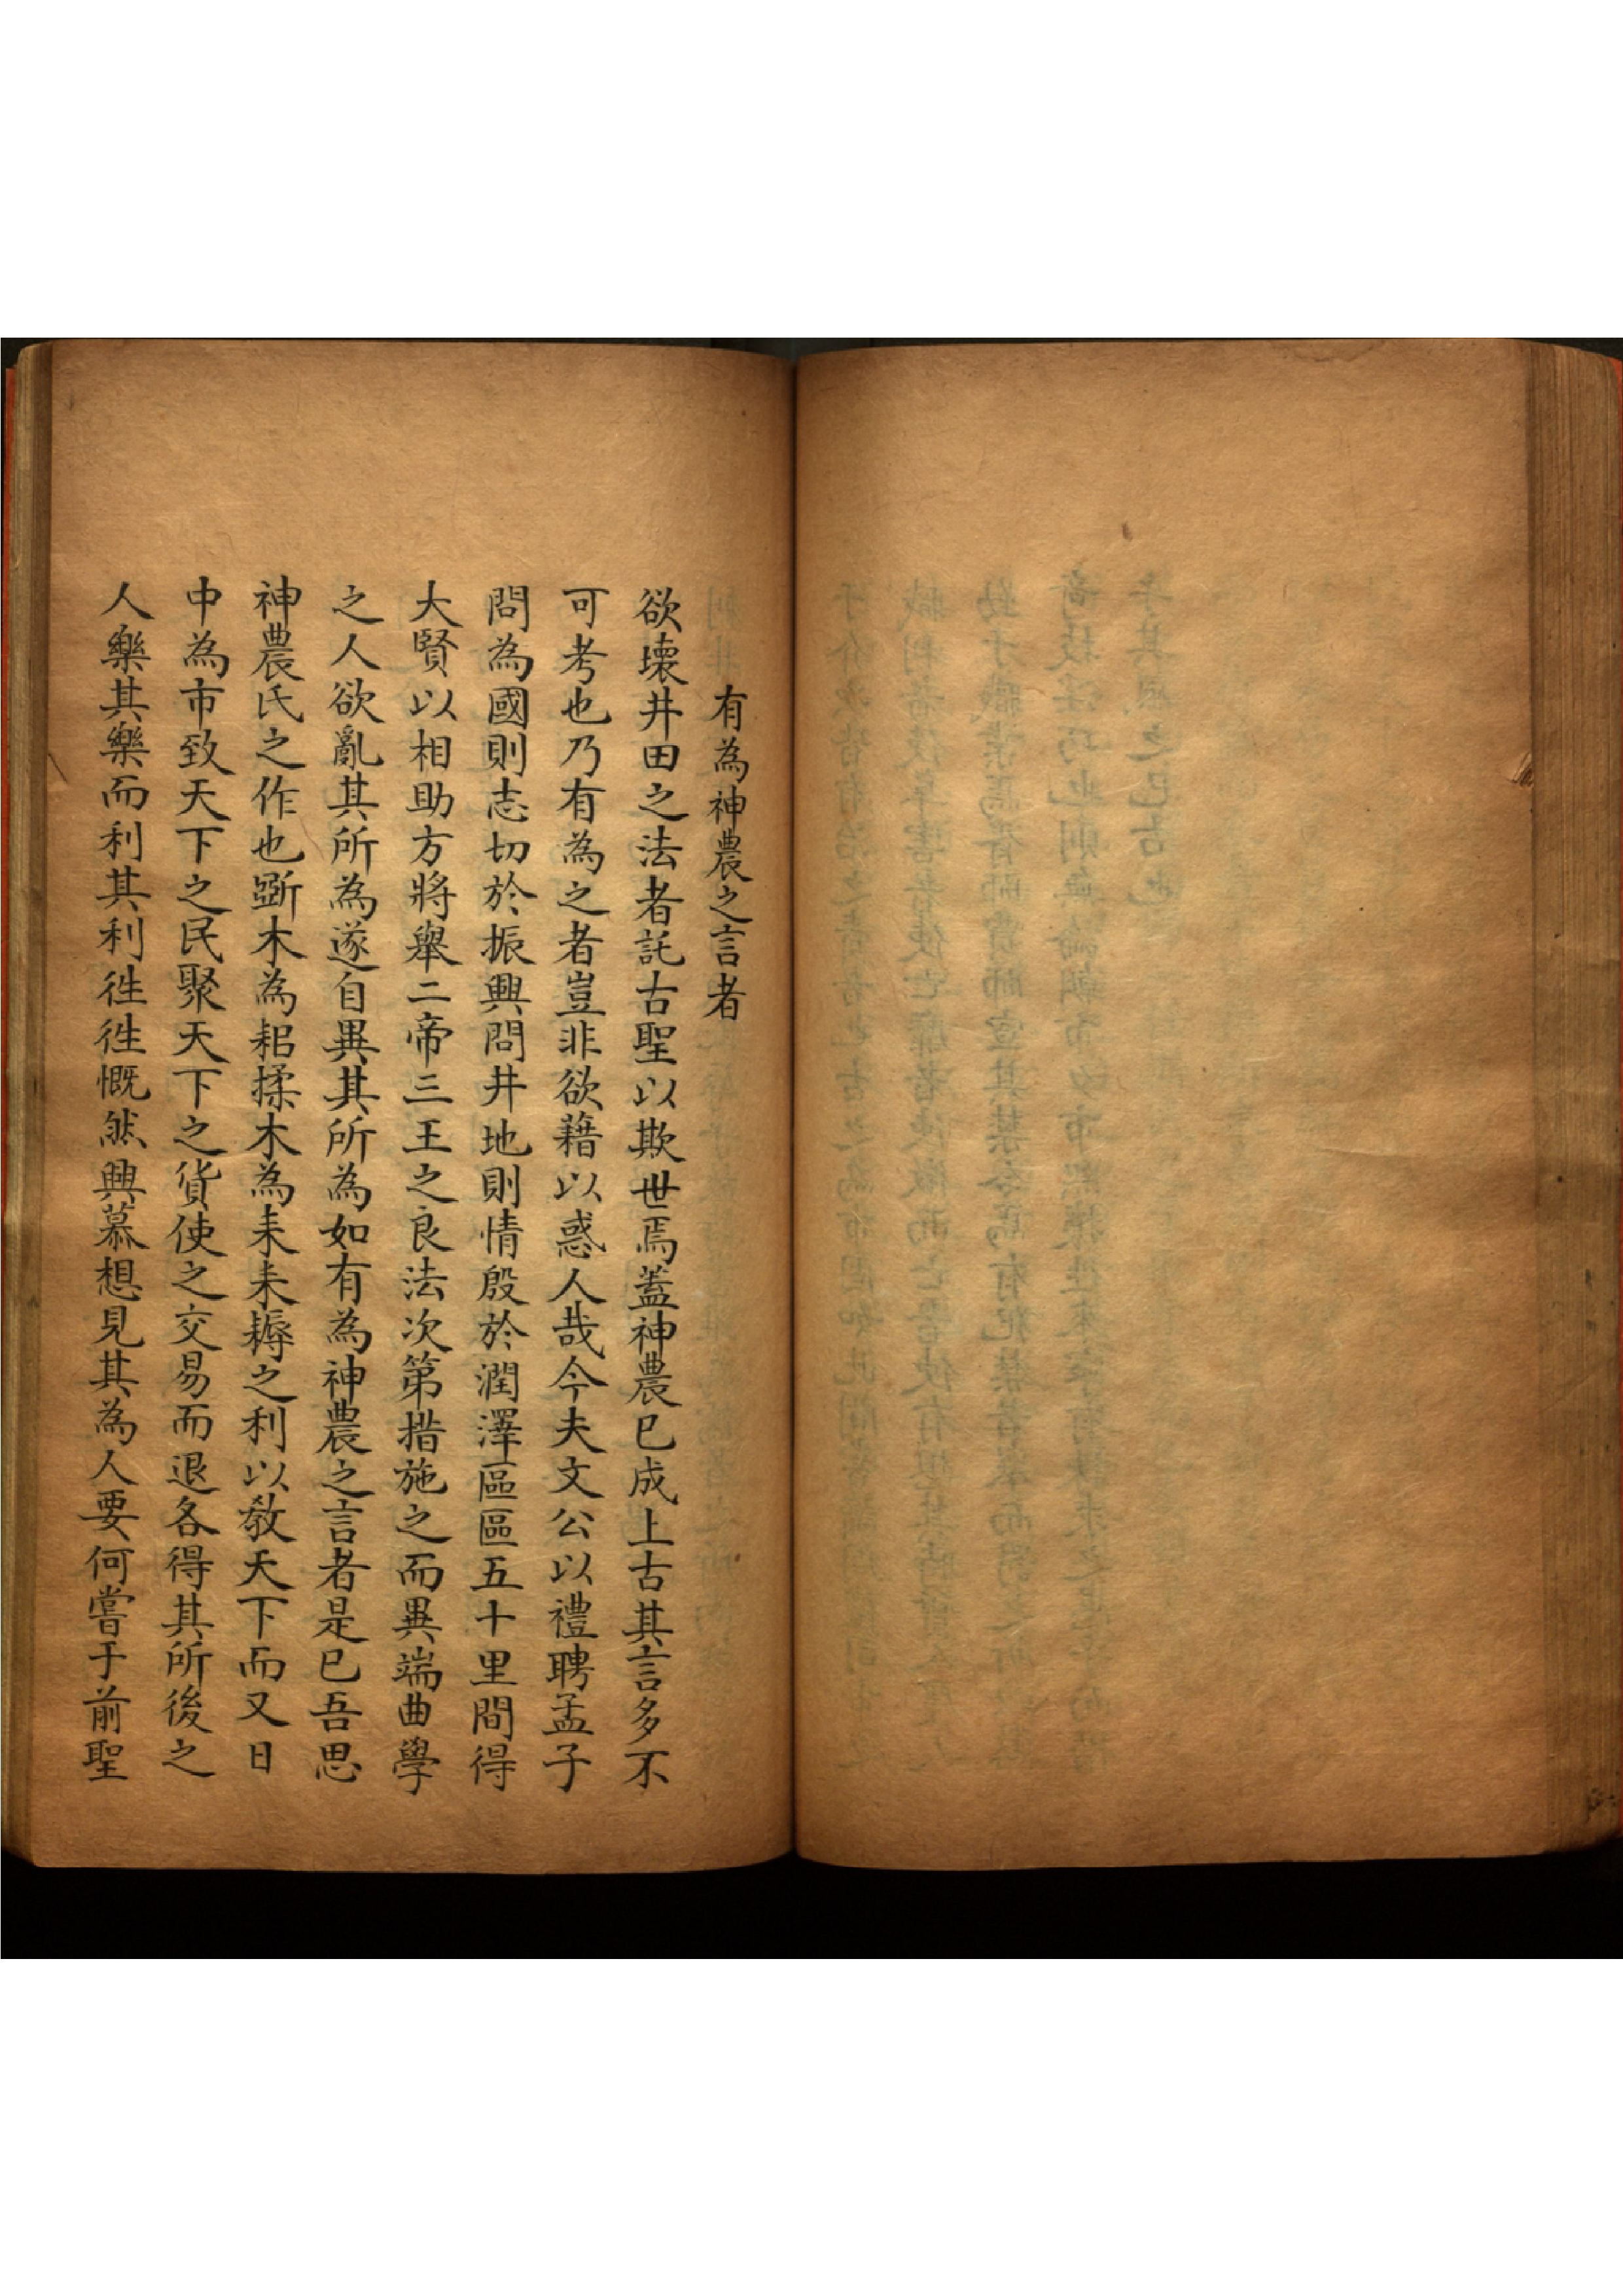 有為神農之言者
欲壊井田之法者託古聖以欺世焉蓋神農已成上古其言多不
可考也乃有為之者豈非欲藉以惑人哉今夫文公以禮聘孟子
問為國則志切於振興問井地則情殷於潤澤區區五十里間得
大賢以相助方將舉二帝三王之良法次第措施之而異端曲學
之人欲亂其所為遂自異其所為如有為神農之言者是已吾思
神農氏之作也斵木為耜揉木為耒耒耨之利以教天下而又日
中為市致天下之民聚天下之貨使之交易而退各得其所後之
人樂其樂而利其利徃徃慨然興慕想見其為人要何嘗于前聖